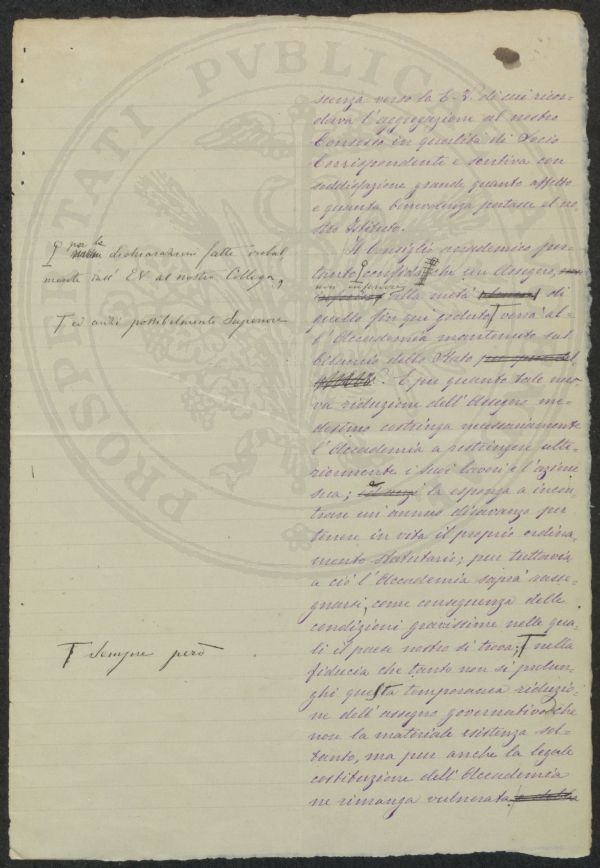 PROSPERITATI PVBLICAE
scenza verso la E. V. di cui ricor-
dava l'aggregazione al nostro
Consesso in qualità di Socio
Corrispondente e sentiva con
soddisfazione grande quanto affetto
e quanta benevolenza portasse al no-
stro Istituto.
Il Consiglio accademico per-
tanto confida che un Assegno,
non inferiore
alla metà di
quello fin qui goduto verrà al-
l'Accademia mantenuto sul
bilancio dello Stato
E più quanto tale nuo-
va riduzione dell'Assegno me-
desimo costringa necessariamente
l'Accademia a restringere ulte-
riormente i suoi lavori e l'azione
sua; e la esponga a incon-
trare un annuo disavanzo per
tenere in vita il proprio ordina-
mento statutario; pur tuttavia
a ciò l'Accademia saprà rasse-
gnarsi, come conseguenza delle
condizioni gravissime nelle qua-
li il paese nostro si trova; nella
fiducia che tanto non si prolun-
ghi questa temporanea riduzio-
ne dell'assegno governativo che
non la materiale esistenza sol-
tanto, ma pur anche la legale
costituzione dell'Accademia
ne rimanga vulnerata
per le
dichiarazioni fatte verbal
mente dall' EV al nostro Collega,
ed anzi possibilmente Superiore
Sempre però